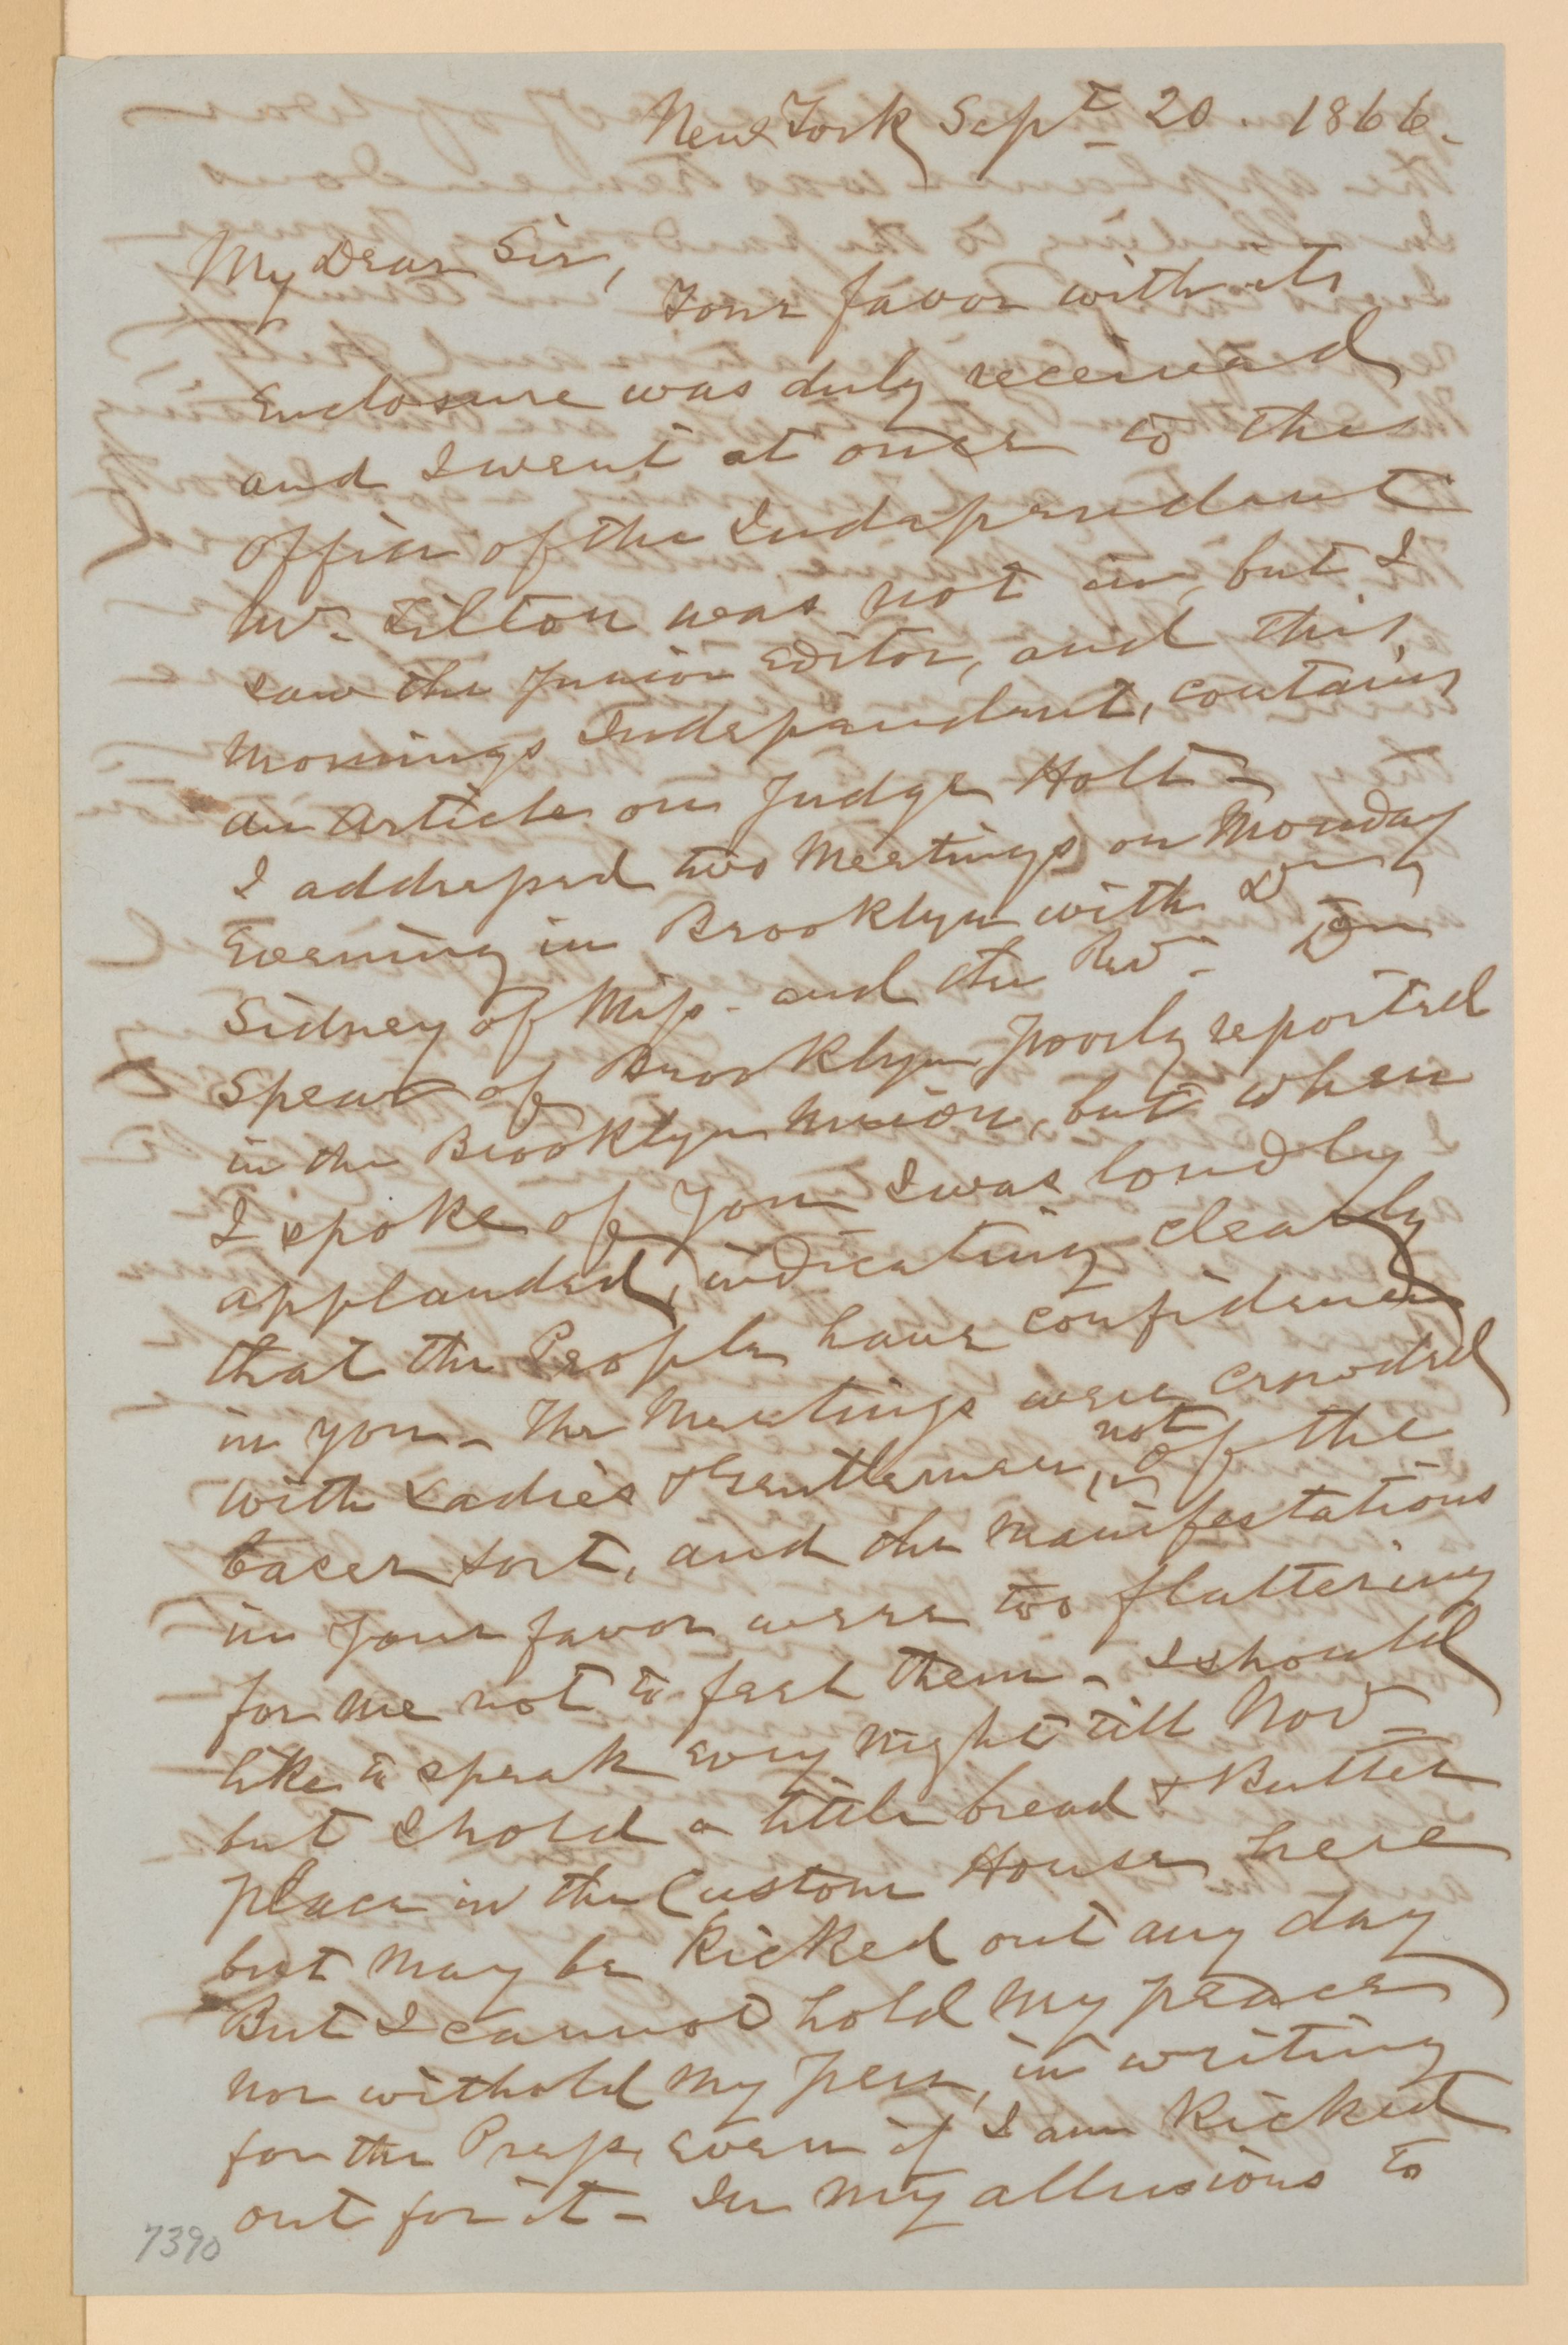 New York Sept 20. 1866.
My Dear Sir,
Your favor with its
Enclosure was duly received
and I went at once to the
office of the Independent
Mr. Tilton was not in, but I
saw the Junior Editor, and this
mornings Independent, contains
an Article on Judge Holt -
I addressed two Meetings on Monday
Evening in Brooklyn with
Sidney of Miss. and the Revd. Dr
Spear of Brooklyn poorly reported
in the Brooklyn Union, but when
I spoke of You I was loudly
applauded, indicating clearly
that the People have confidence
in you - The Meetings were crowded
with Ladies & Gentlemen, not of the
baser sort, and the manifestations
in Your favor were too flattering
for me not to feel them - I should
like to speak every night till Nov -
but I hold a little bread & Butter
place in the Custom House here
but may be Kicked out any day
But I cannot hold my peace
nor withold my pen, in writing
for the Press, even if I am Kicked
out for it - In my allusions to
7390